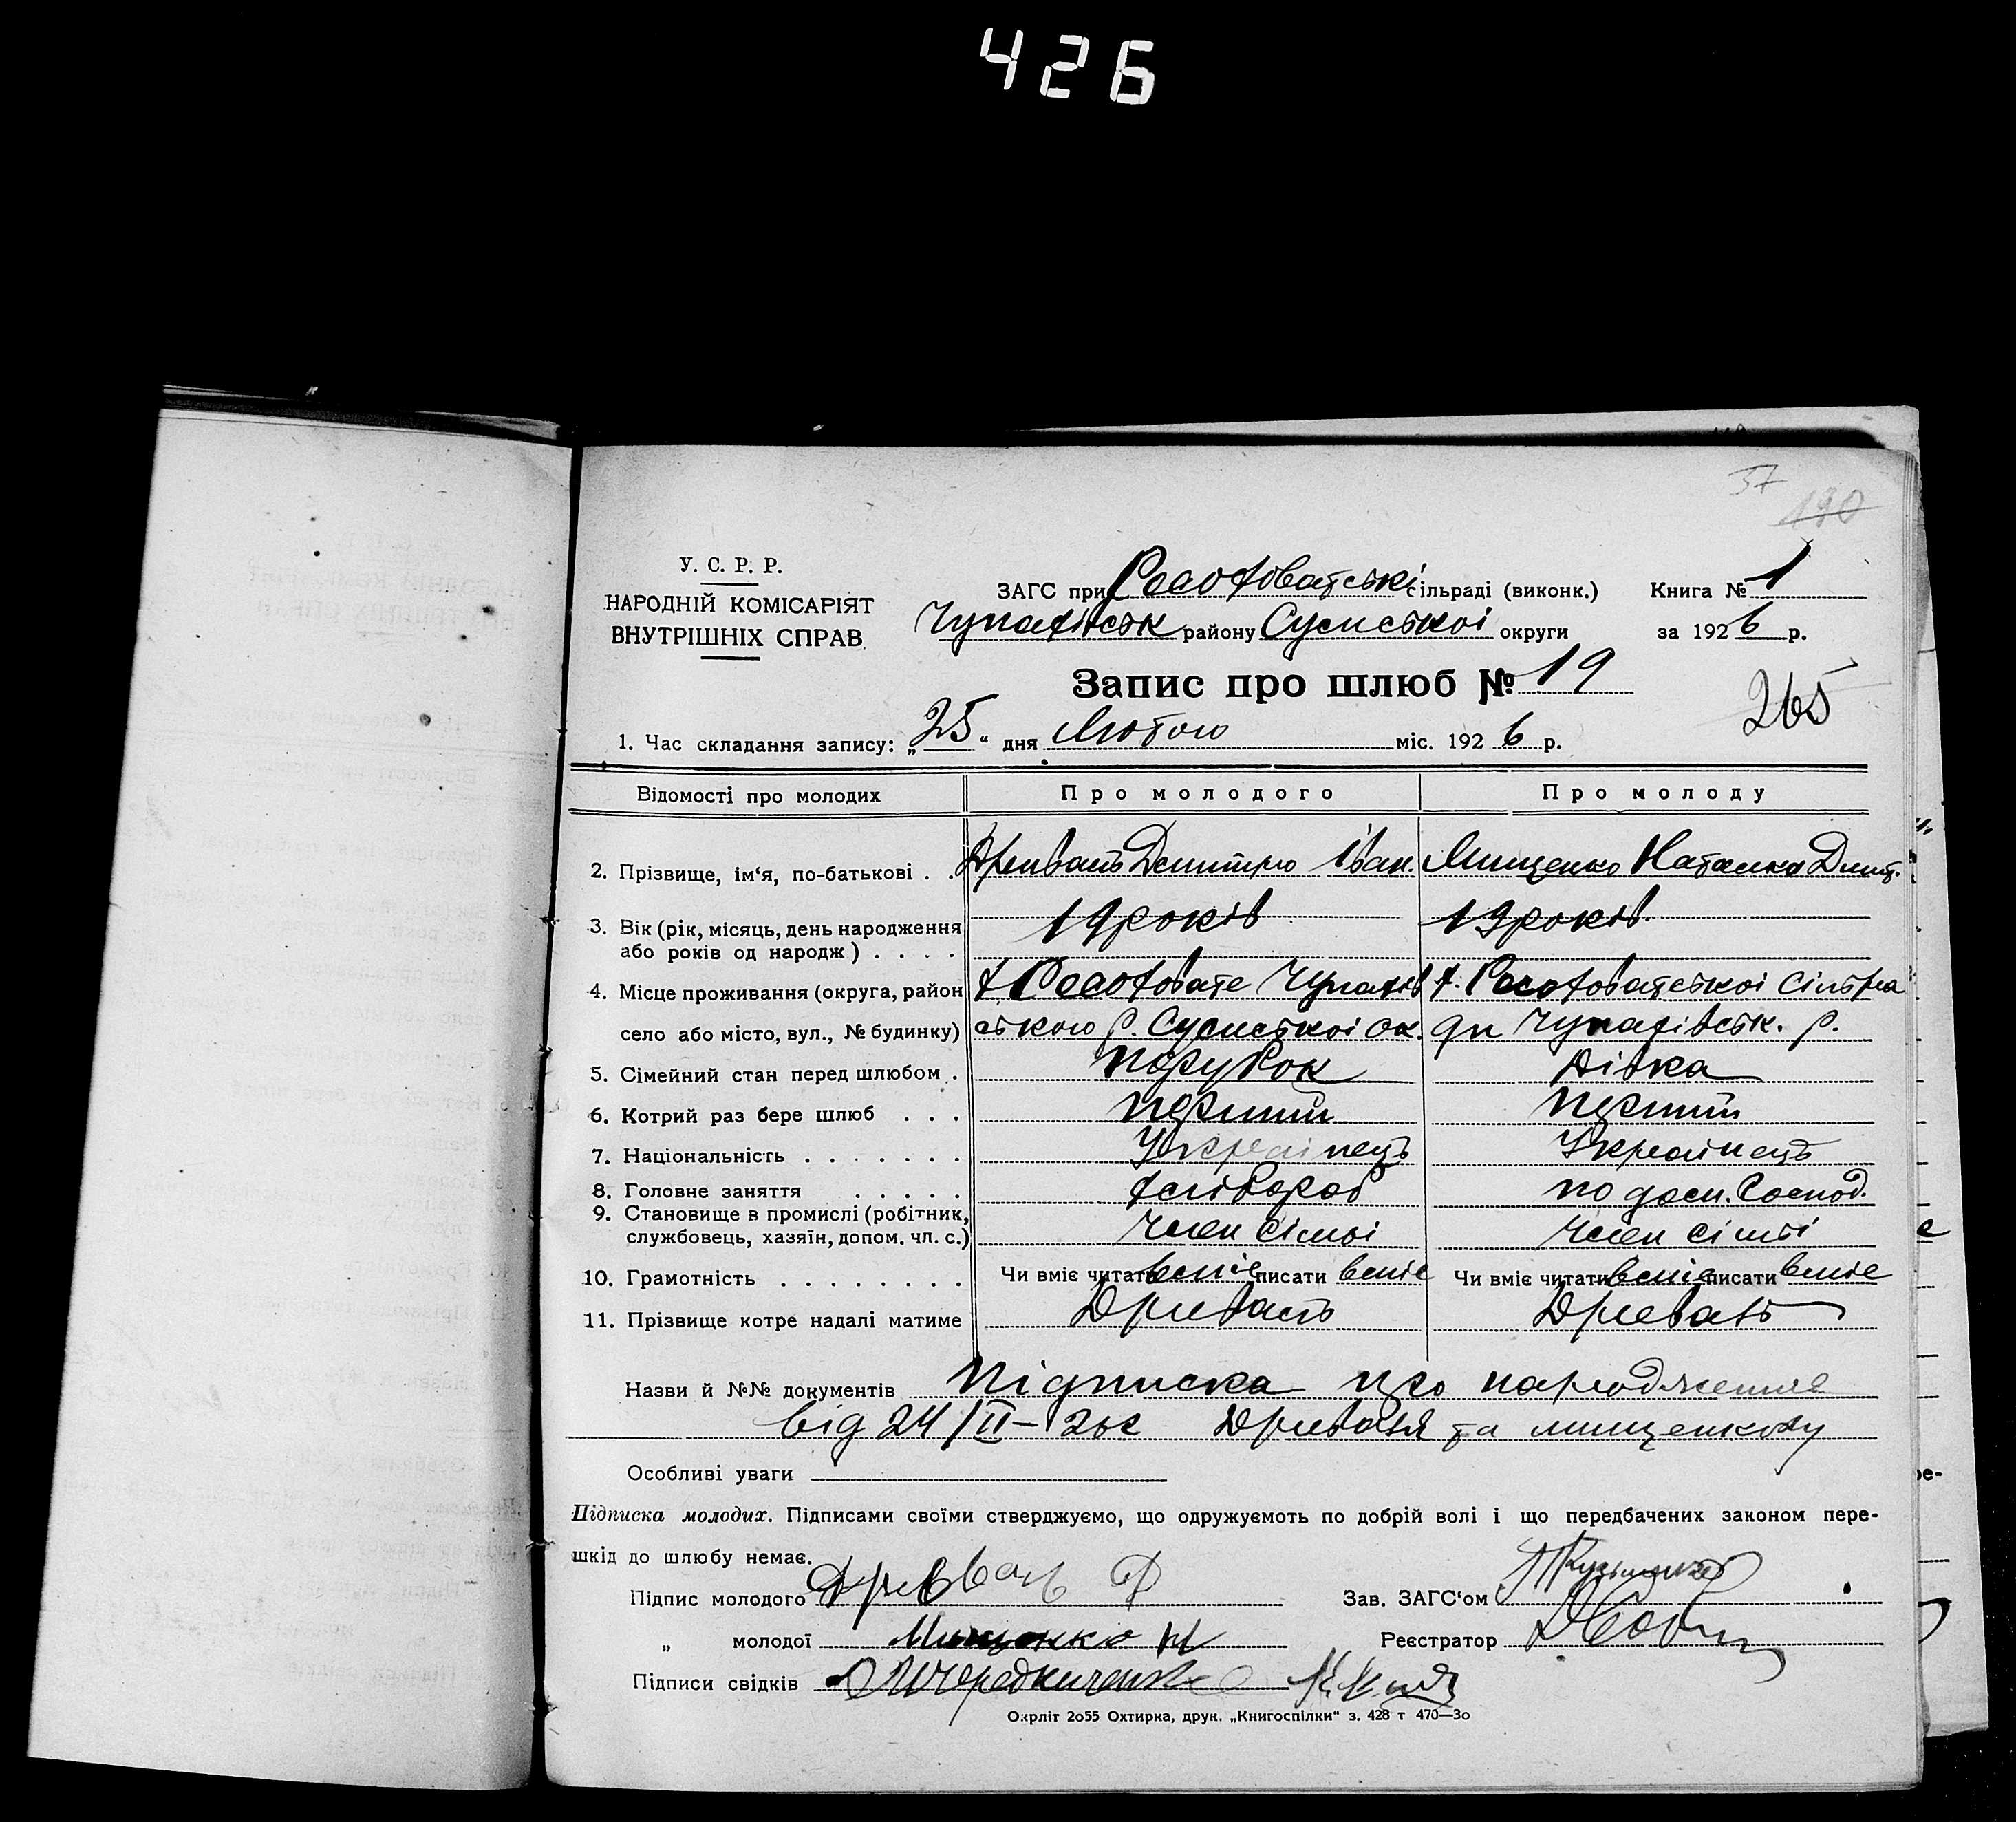 426
37
190
У. С. Р. Р.
НАРОДНІЙ КОМІСАРІЯТ
ВНУТРІШНІХ СПРАВ
ЗАГС при сільраді (виконк.) Книга № 1
Чупахівськ району Сумської округи за 1926 р.
Запис про шлюб № 19
265
1. Час складання запису: „25“ дня Лютого міс. 1926 р.
Відомості про молодих Про молодого Про молоду
2. Прізвище, ім‘я, по-батькові . . Древаль Дмитро Іван. Мищенко Наталка Дмит.
3. Вік (рік, місяць, день народження 19 років 19 років.
або років од народж) . . . .
4. Місце проживання (округа, район х. Чупахів х. сільра
село або місто, вул., № будинку) ського р. Сумської ок. ди Чупахівськ. р.
5. Сімейний стан перед шлюбом . парубок дівка
6. Котрий раз бере шлюб . . . перший перший
7. Національність . . . . . . . Українець Українець
8. Головне заняття . . . . . хлібороб по дом. Господ.
9. Становище в промислі (робітник,
службовець, хазяїн, допом. чл. с.) член сімьї член сімьї
10. Грамотність . . . . . . . . Чи вміє читати вміє писати вміє Чи вміє читати вміє писати вміє
11. Прізвище котре надалі матиме Древаль Древаль
Назви й №№ документів Підписка про народження
від 24/II– Древаля та мищенкову
Особливі уваги
Підписка молодих. Підписами своїми стверджуємо, що одружуємоть по добрій волі і що передбачених законом пере-
шкід до шлюбу немає.
Підпис молодого Древаль Д Зав. ЗАГС‘ом
„ молодої Мищенко Н Реєстратор
Підписи свідків
Окрліт 2о55 Охтирка, друк. „Книгоспілки“ з. 428 т 470—3о